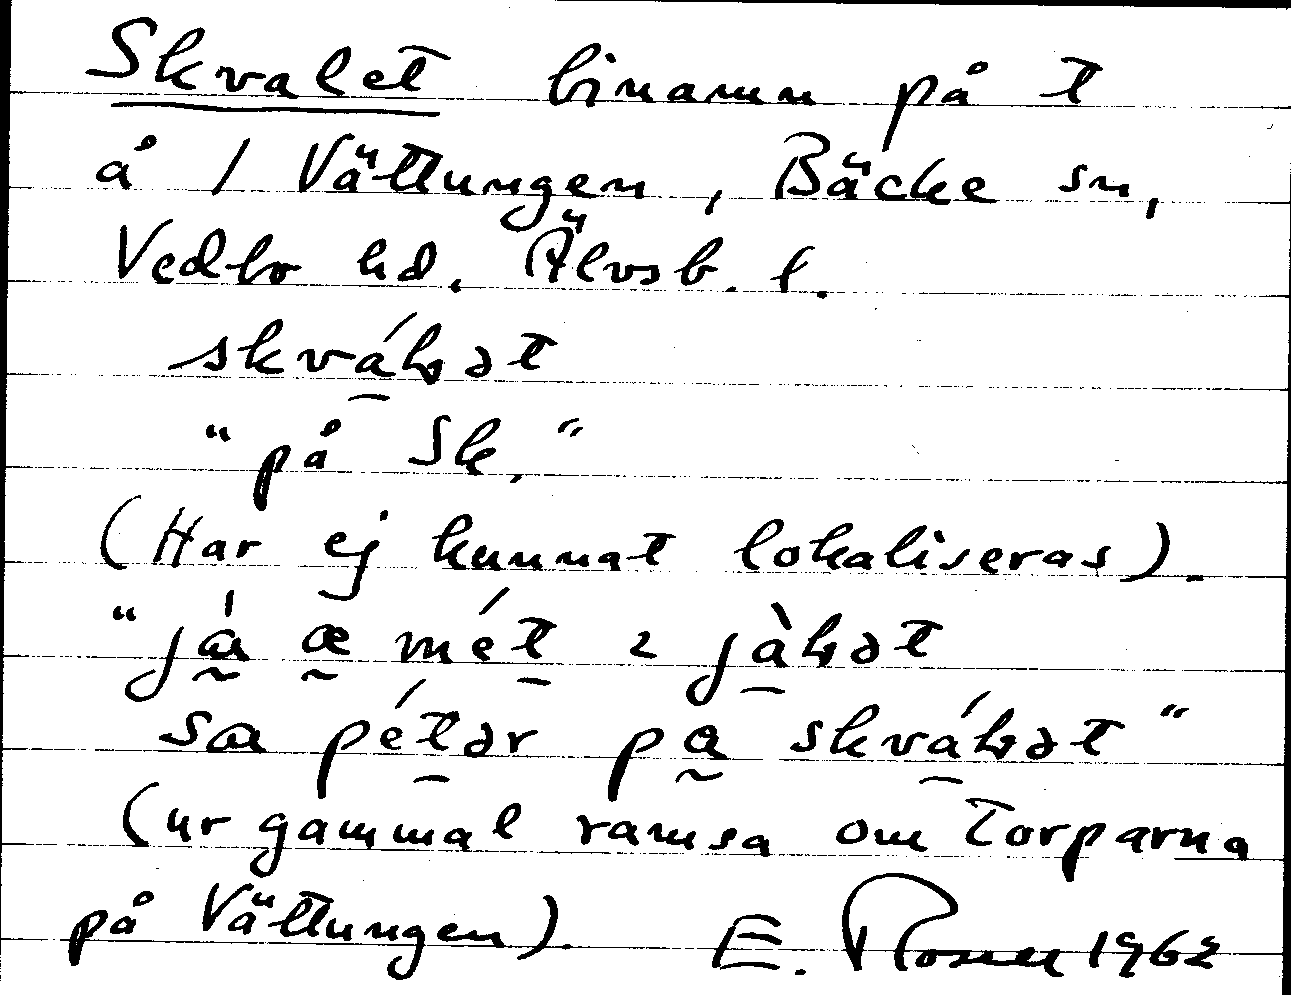 Skvalet binamn på t
å / Vättungen, Bäcke sn,
Vedbo hd. Älvsb. l.
skválət
"på Sk."
(Har ej kunnat lokaliseras).
"já æ mét ı jàlət
sa pétər pa skválət"
(ur gammal ramsa om torparna
på Vättungen). E. Rosell 1962